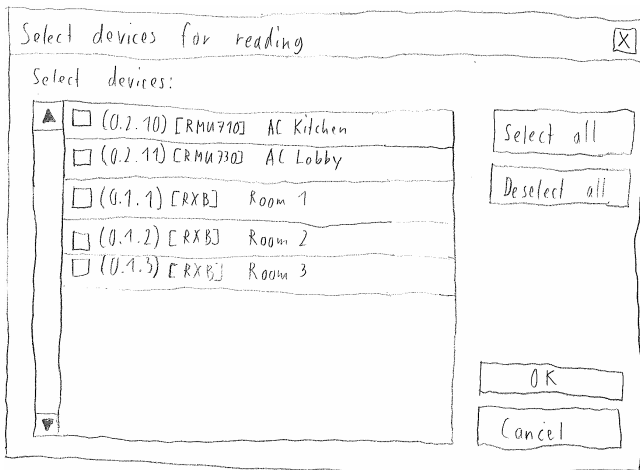 Select devices for reading X
Select devices:
(0.2.10) [RMU710] AC Kitchen
(0.2.11) [RMU730] AC Lobby
(0.1.1) [RXB] Room 1
(0.1.2) [RXB] Room 2
(0.1.3) [RXB] Room 3
Select all
Deselect all
OK
Cancel